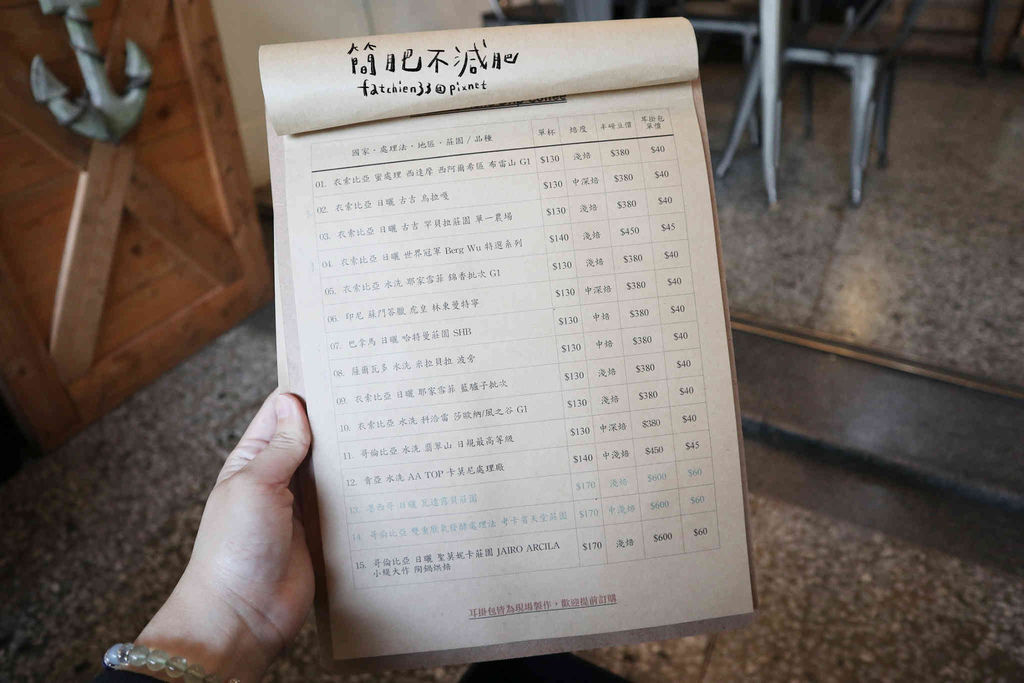 簡肥不減肥
fatchien33@pixnet
國家·處理法·地區·莊園/品種 單杯 焙度 半磅豆價 耳掛包單價
01. 衣索比亞 蜜處理 西達摩 西阿爾希區 布雷山 G1 $130 淺焙 $380 $40
02. 衣索比亞 日曬 古吉 烏拉嘎 $130 中深焙 $380 $40
03. 衣索比亞 日曬 古吉 罕貝拉莊園 單一農場 $130 淺焙 $380 $40
04. 衣索比亞 日曬 世界冠軍 Berg Wu 特選系列 $140 淺焙 $450 $45
05. 衣索比亞 水洗 耶家雪菲 錦香批次 G1 $130 淺焙 $380 $40
06. 印尼 蘇門答臘 虎皇 林東曼特寧 $130 中深焙 $380 $40
07. 巴拿馬 日曬 哈特曼莊園 SHB $130 中焙 $380 $40
08. 薩爾瓦多 水洗 米拉貝拉 波旁 $130 中焙 $380 $40
09. 衣索比亞 日曬 耶家雪菲 藍驢子批次 $130 淺焙 $380 $40
10. 衣索比亞 水洗 科洽雷 莎歐納/風之谷 G1 $130 淺焙 $380 $40
11. 哥倫比亞 水洗 翡翠山 日規最高等級 $130 中深焙 $380 $40
12. 肯亞 水洗 AA TOP 卡莫尼處理廠 $140 中淺焙 $450 $45
13. 墨西哥 日曬 瓦達露貝莊園 $170 淺焙 $600 $60
14. 哥倫比亞 雙重厭氧發酵處理法 考卡省天堂莊園 $170 中淺焙 $600 $60
15. 哥倫比亞 日曬 聖莫妮卡莊園 JAIRO ARCILA $170 淺焙 $600 $60
小緹大作 陶鍋烘焙
耳掛包皆為現場製作，歡迎提前訂購